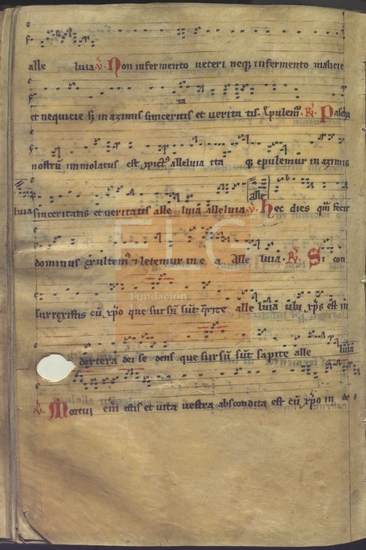 alle luia ℣. Non in fermento veteri neqꝫ in fermento malicie
et nequicie ſꝫ in azimis sinceritatis et veritatis. Epulem᷒ ℟. Pascha
nostrū immolatus est xpict᷒ alleluia ita qꝫ epulemur in azimis
sinceritatis et veritatis alle luia alleluia ℣. hec dies quā fecit
dominus exultem᷒ ⁊ letemur in e a. Alle luia. ℟. Si con
surrexistis cū xpo que sursū sūt q̄rite alle luia ubi xps est in
dextera dei se dens que sursū sūt sapite alle luia
℣. Mortui eni estis et vita vestra abscondita est cū xpo in de o
FLC
Fundación